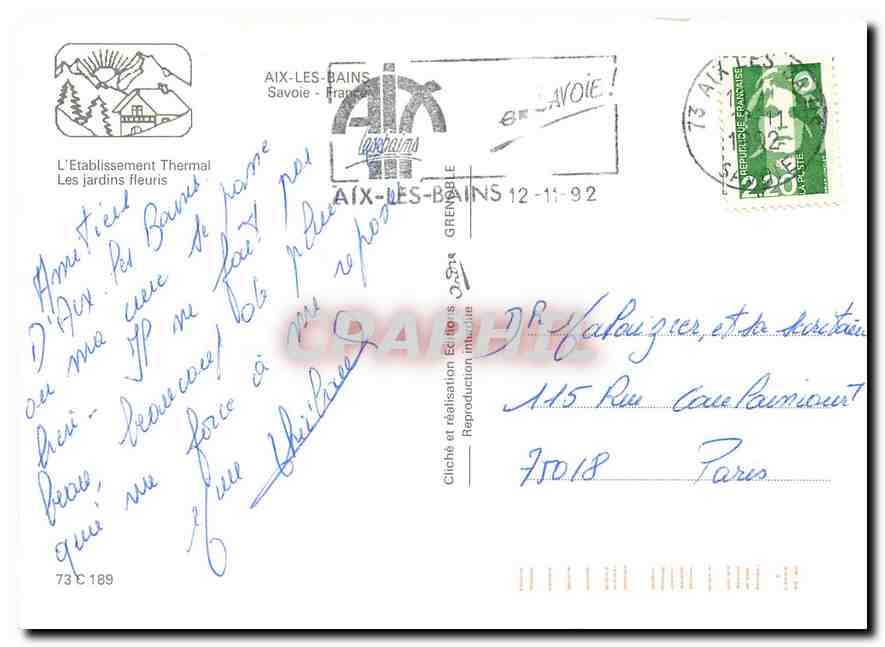 AIX-LES-BAINS
Savoie - France
L'Etablissement Thermal
Les jardins fleuris
AIX
les bains
en SAVOIE !
AIX-LES-BAINS 12-11-92
73 AIX LES BAINS
SAVOIE
REPUBLIQUE FRANÇAISE
LA POSTE
2,20
Amitiés
D'Aix les Bains
ou ma cure se passe
bien - Il ne fait pas
beau, beaucoup de pluie
qui me force à me repose
Mme
Cliché et réalisation Editions
GRENOBLE
Reproduction interdite
CPAPHIL
Dr et sa
115 Rue Caulaincourt
75018 Paris
73 C 189